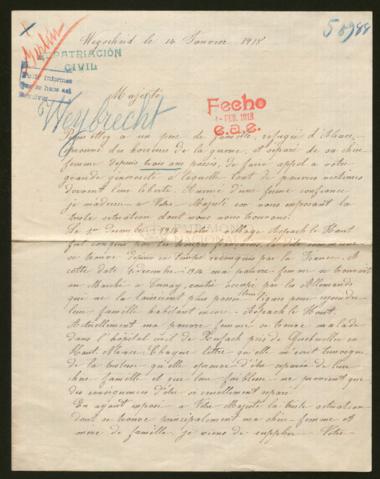 50988
Wegscheid le 14 Janvier 1918
Berlin
REPATRIACIÓN
CIVIL
Majesté
Fecho
1-FEB. 1918
e.a.e.
Weybrecht
Permettez à un père de famille, réfugié d'Alsace,
éprouvé des horreurs de la guerre et séparé de sa chère
femme depuis trois ans passés, de faire appel à votre
grande générosité à laquelle tant de pauvres victimes
doivent leur liberté. Animé d'une ferme confiance
je m'adresse à Votre Majesté en vous exposant la
triste situation dont nous nous trouvons:
Le 1er Décembre 1914 notre village Aspach le Haut
fut conquis par les troupes françaises,
se trouve depuis ce temps reconquis par la France. A
cette date Décembre 1914 ma pauvre femme se trouvait
au Marché à Cernay, contrée occupée par les Allemands
qui ne la laissèrent plus passer leurs lignes pour rejoindre
leur famille habitant encore Aspach le Haut.
Actuellement ma pauvre femme se trouve malade
dans l'hôpital civil de Rufach près de Guebwiller en
Haute Alsace. Chaque lettre qu'elle m'écrit témoigne
de la tristesse qu'elle éprouve d'être séparée de leur
chère famille et que leur faiblesse ne provient que
des ennuis d'être si cruellement séparé
En ayant exposé à Votre Majesté la triste situation
dont se trouve principalement ma chère femme et
mère de famille, je viens de supplier Votre